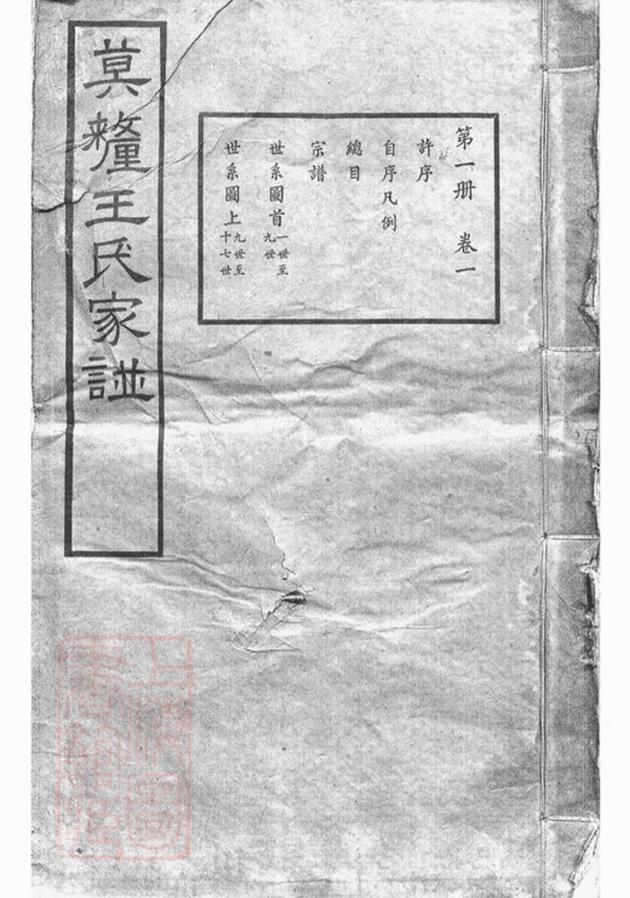 第一册 卷一
許序
自序凡例
總目
宗譜
世系圖首一世至九世
世系圖上九世至十七世
莫釐王氏家譜